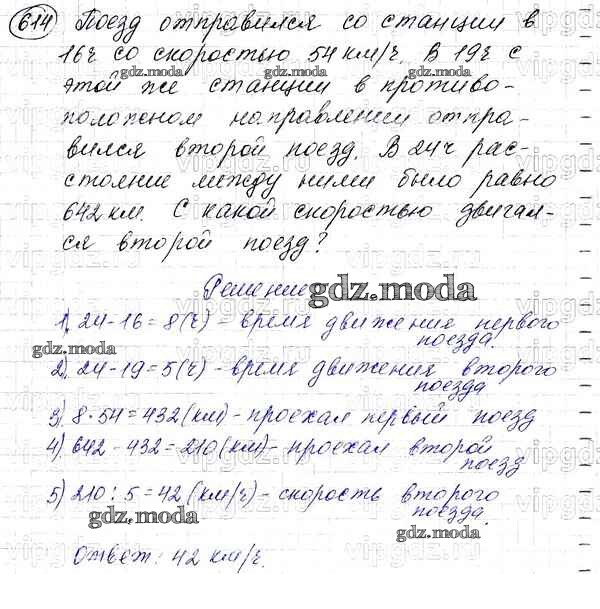 614 Поезд отправился со станции в
16ч со скоростью 54 км/ч. В 19ч с
этой же станции в противо-
положном направлении отпра-
вился второй поезд. В 24ч рас-
стояние между ними было равно
642 км. С какой скоростью двигал-
ся второй поезд?
Решение
gdz.moda
1) 24-16=8(ч) - время движения первого
поезда
2) 24-19=5(ч) - время движения второго
поезда
3) 8·54=432(км) - проехал первый поезд
4) 642-432=210(км) - проехал второй
поезд
5) 210:5=42(км/ч) - скорость второго
поезда.
Ответ: 42 км/ч.